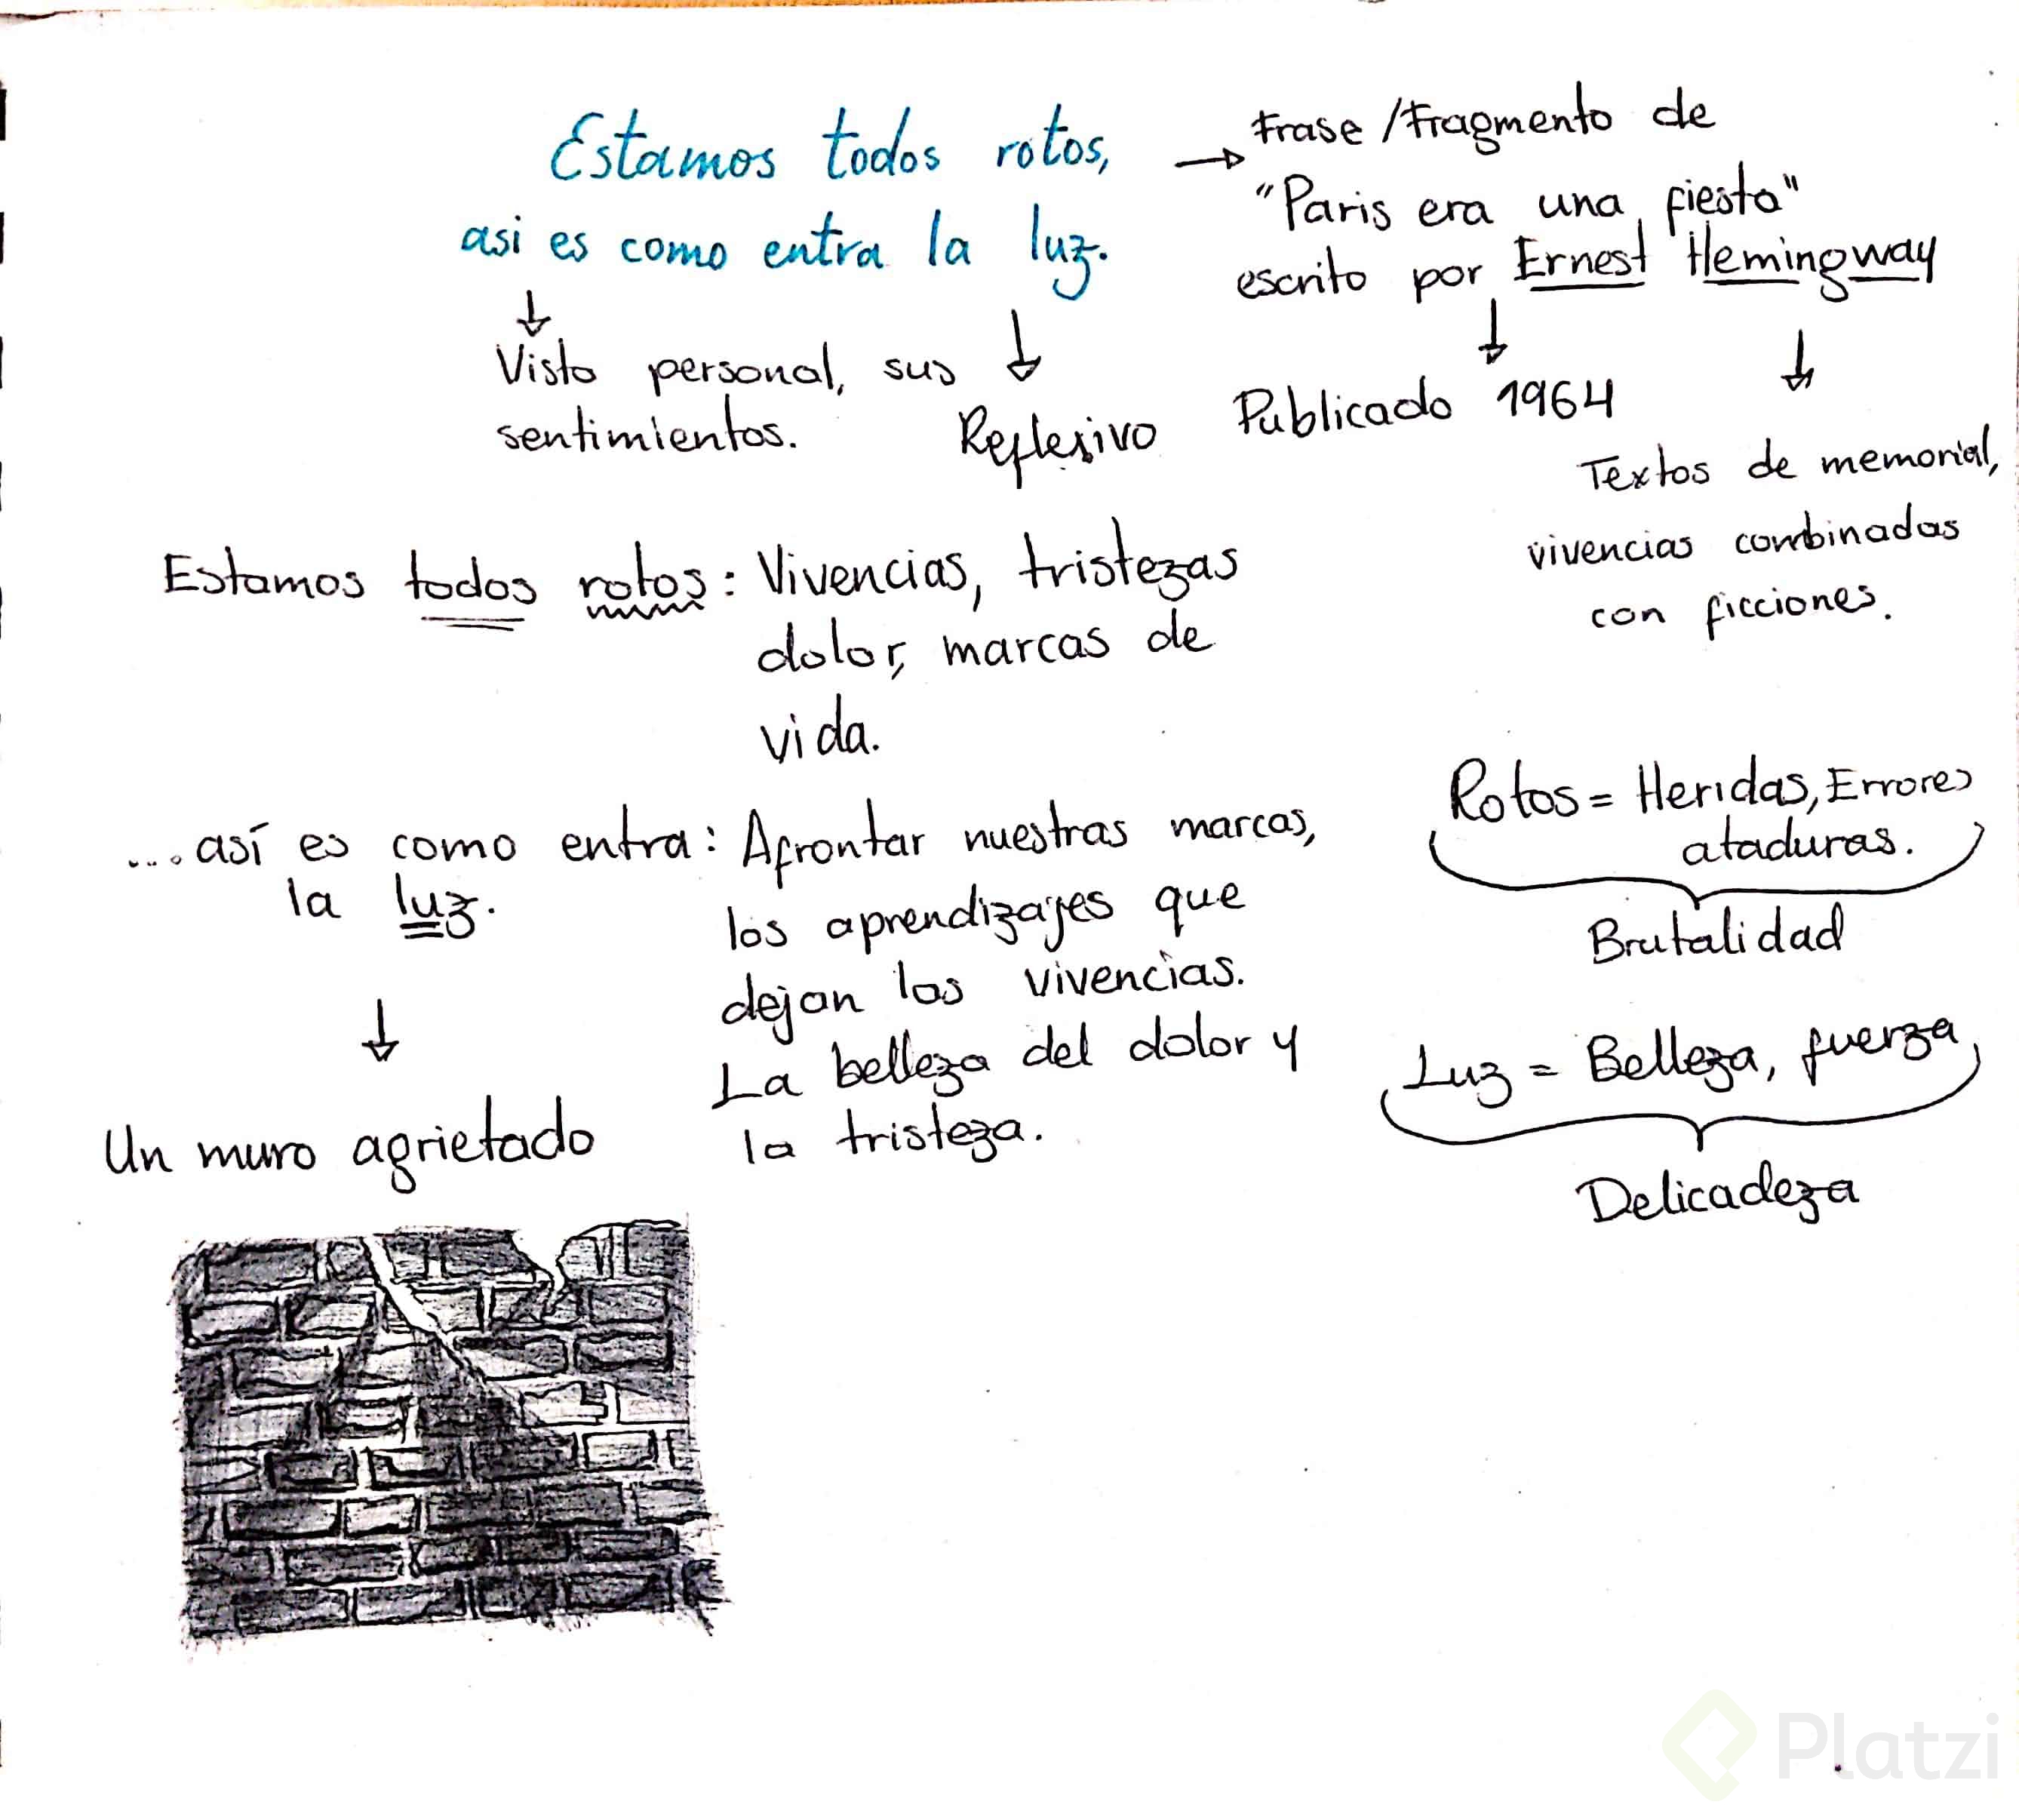 Estamos todos rotos,
asi es como entra la luz.
→ Frase / Fragmento de
"Paris era una fiesta"
escrito por Ernest Hemingway
Visto personal, sus
sentimientos.
Reflexivo
Publicado 1964
Textos de memorial,
vivencias combinadas
con ficciones.
Estamos todos rotos: Vivencias, tristezas
dolor, marcas de
vida.
...así es como entra: Afrontar nuestras marcas,
la luz.
los aprendizajes que
dejan las vivencias.
La belleza del dolor y
la tristeza.
Un muro agrietado
Rotos = Heridas, Errores
ataduras.
Brutalidad
Luz = Belleza, fuerza
Delicadeza
Platzi